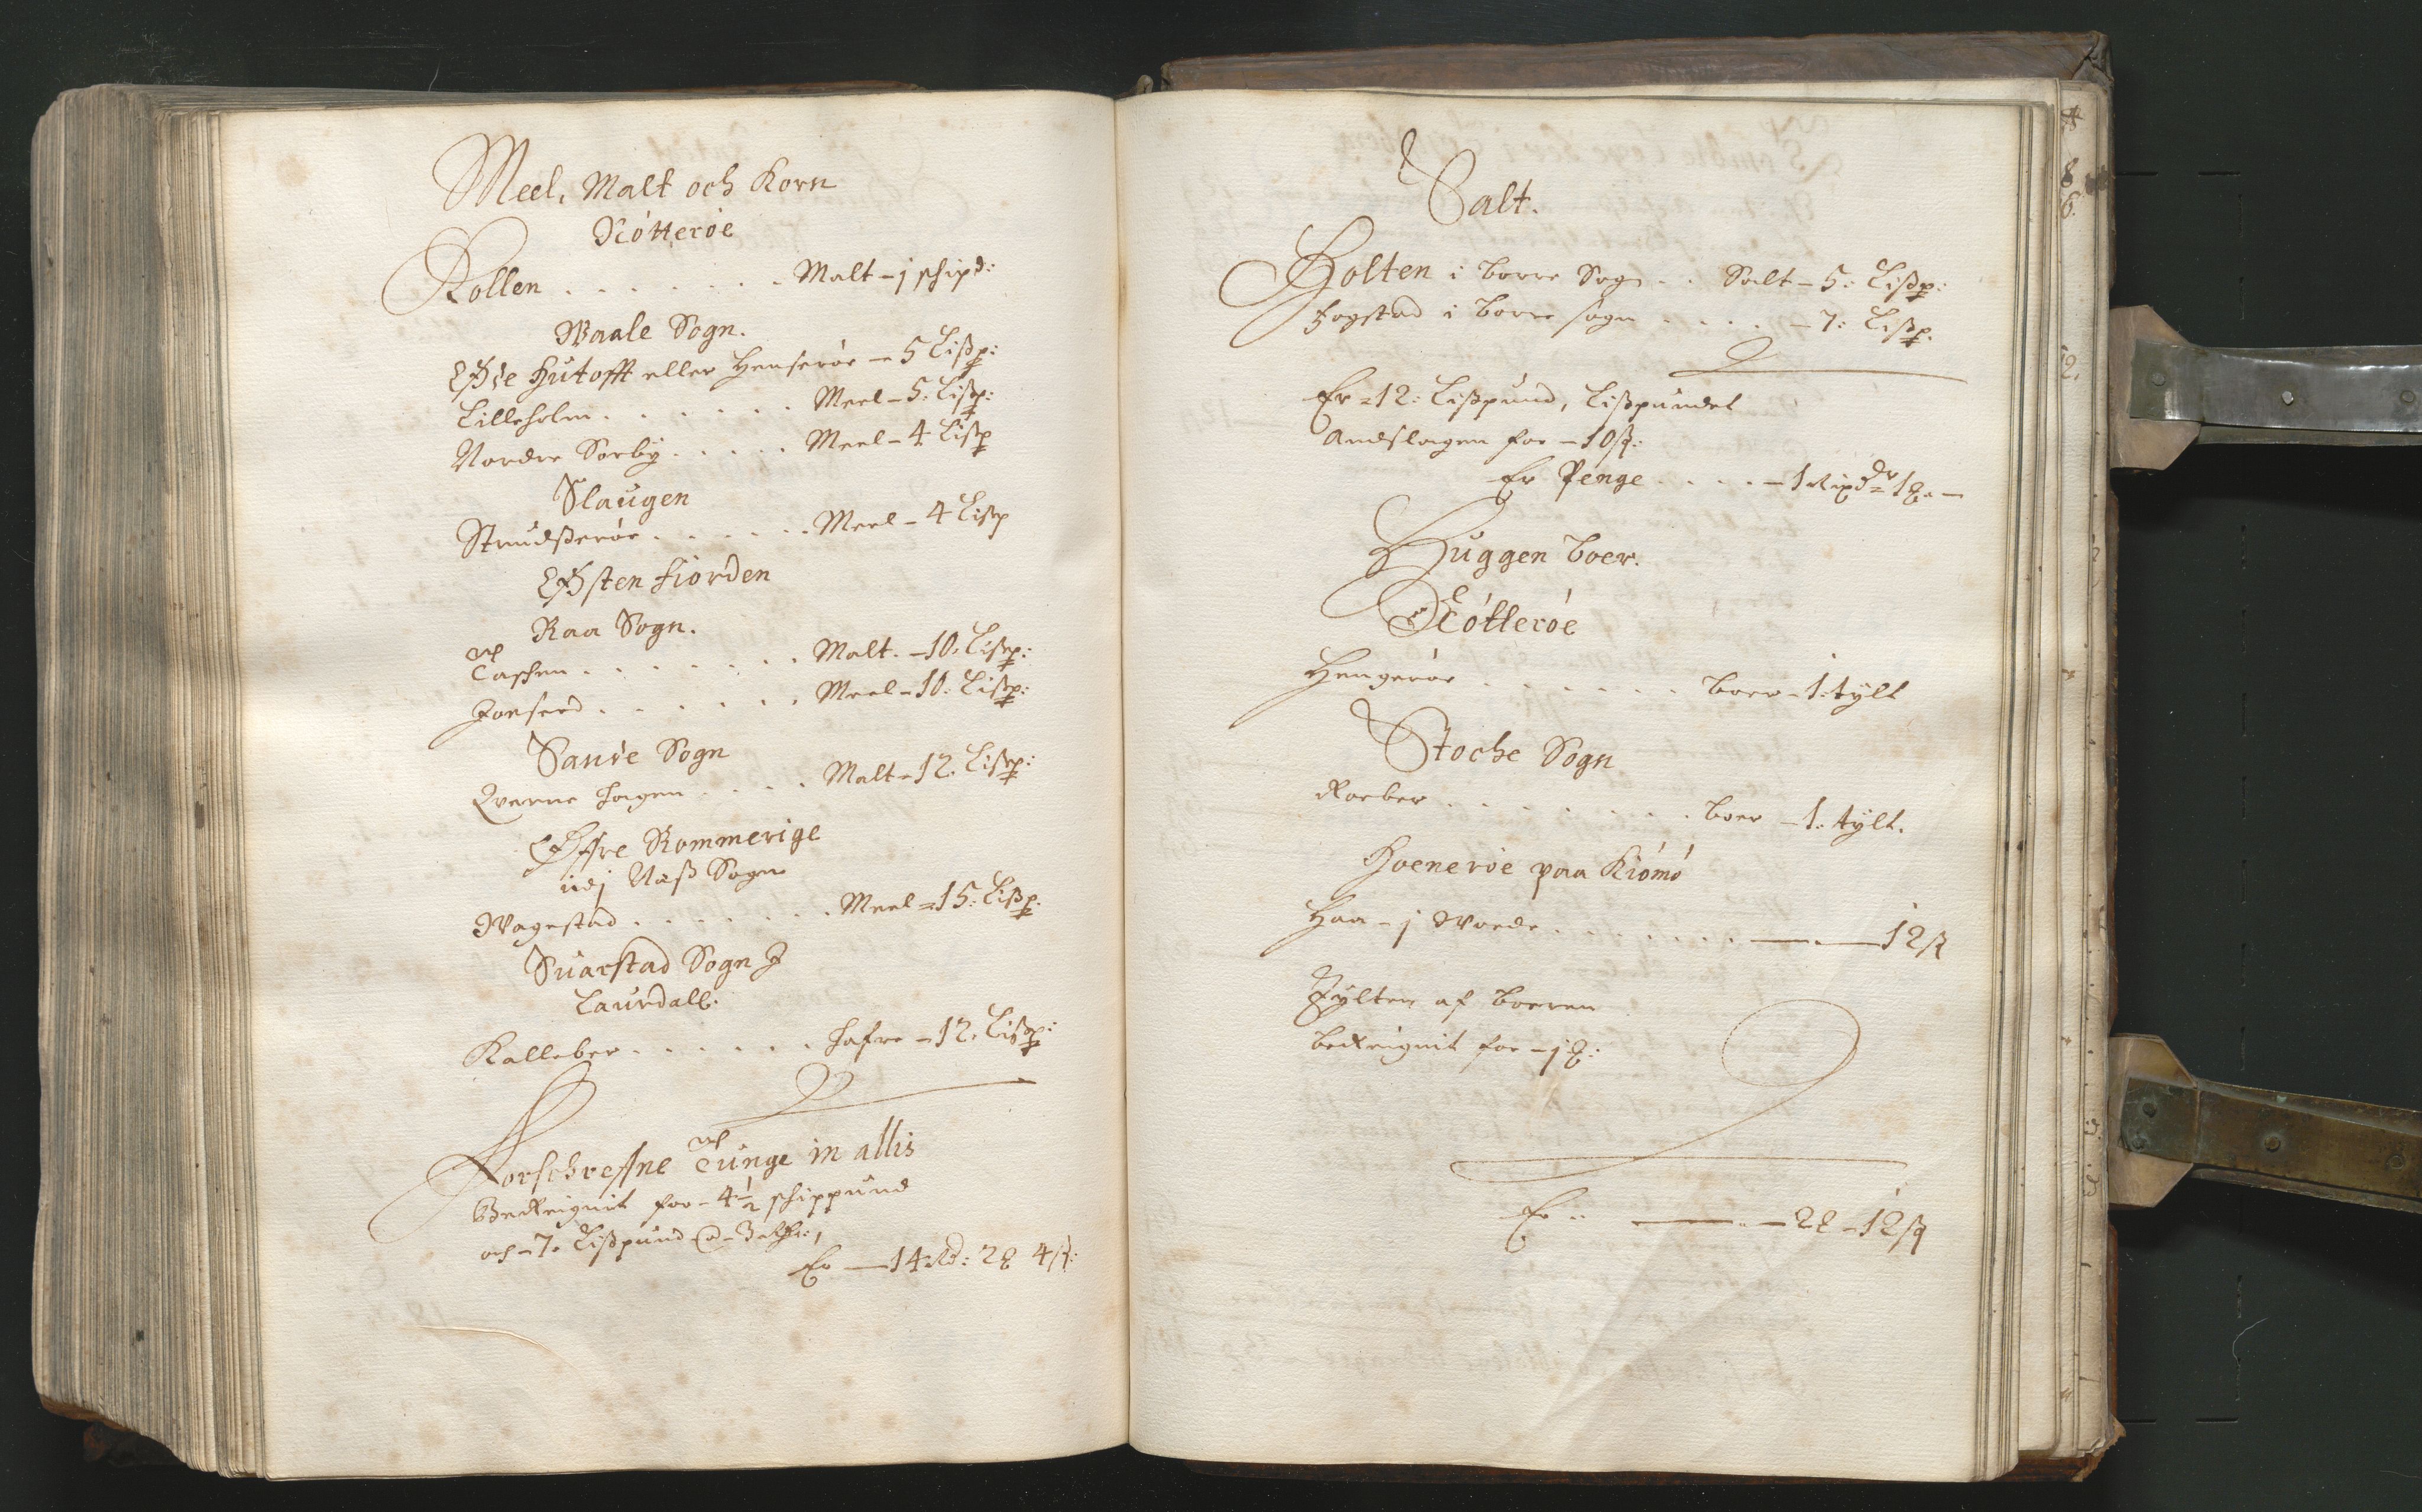 Meel, Malt och Korn
Nótteróe
Rollen . . . . . . . Malt – j schipd:
Waale Sogn.
Øfre Hutofft eller Henserøe – 5 Lißp:
Lilleholm . . . . . . Meel – 5: Lißp:
Nordre Sørby . . . . . Meel – 4 Lißp
Slaugen
Strudßerøe . . . . . . Meel – 4 Lißp
Østen fiorden
Raa Sogn.
Taschen . . . . . . . Malt. – 10. Lißp:
Joeserd . . . . . . . Meel – 10: Lißp:
Sande Sogn
Querne hagen . . . . Malt – 12. Lißp:
Øfre Rommerige
udj Næß Sogn
Wagestad . . . . . . . Meel = 15: Lißp.
Suarstad Sogn J
Laurdall:
Kalleber . . . . . . hafre – 12. Lißp:
Forschrefne Tunge in allis
Beregnit for – 4½ schippund
och – 7. Lißpund @ – 3 Rdr:,
Er — 14 Rd: 2 ℥ 4 ß:
Salt.
Holten i Borre Sogn . . Salt – 5: Lißp:
Fogstad i Borre sogn . . . . – 7: Lißp.
Er = 12: Lißpund, Lißpundet
Andslagen for – 10 ß:
Er Penge . . . . – 1 Rixdr = 1 ℥. —
Huggen Boer.
Nótteróe
Hengerøe . . . . . . Boer – 1: tylt
Stoche Sogn
Roeber . . . . . . . Boer – 1: tylt.
Hoenerøe paa Kiómó
Haa – j Woede . . . . . . . — — 12 ß
Tylten af Boeren
Beregnit for – j ℥:
Er .. — .. – 2 ℥ – 12 ß